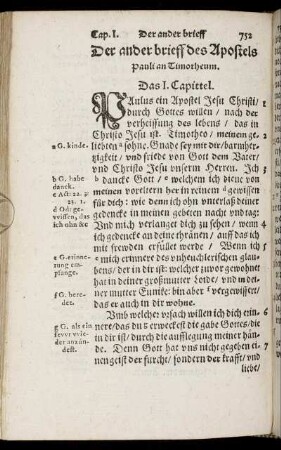 Cap. I. Der ander brieff 752
Der ander brieff des Apostels
Pauli an Timotheum.
Das I. Capittel.
PAulus ein Apostel Jesu Christi / 1
durch Gottes willen / nach der
verheissung des lebens / das in
Christo Jesu ist. Timotheo / meinem ge= 2
liebten a sohne. Gnade sey mit dir / barmher=
tzigkeit / und friede von Gott dem Vater /
und Christo Jesu unserm Herren. Ich 3
b dancke Gott / c welchem ich diene von
meinen voreltern her in reinem d gewissen
für dich: wie denn ich ohn unterlaß deiner
gedencke in meinen gebeten nacht und tag:
Und mich verlanget dich zu sehen / wenn 4
ich gedencke an deine thränen / auff das ich
mit freuden erfüllet werde / Wenn ich 5
mich erinnere des unheuchlerischen glau=
bens / der in dir ist: welcher zuvor gewohnet
hat in deiner großmutter Loide / und in dei=
ner mutter Eunike: bin aber f vergewissert /
das er auch in dir wohne.
Umb welcher ursach willen ich dich erin= 6
nere / das du g erweckest die gabe Gottes / die
in dir ist / durch die aufflegung meiner hän=
de. Denn Gott hat uns nicht gegeben ei= 7
nen geist der furcht / sondern der krafft / und
liebe /
a G. kinde.
b G. habe
danck.
c Act: 22. ℣
23. 1.
d Od: ge-
wissen, das
ich ohn &c
e G. erinne-
rung em-
pfange.
f G. bere-
det.
g G. als ein
fewr wie-
der anzün-
dest.